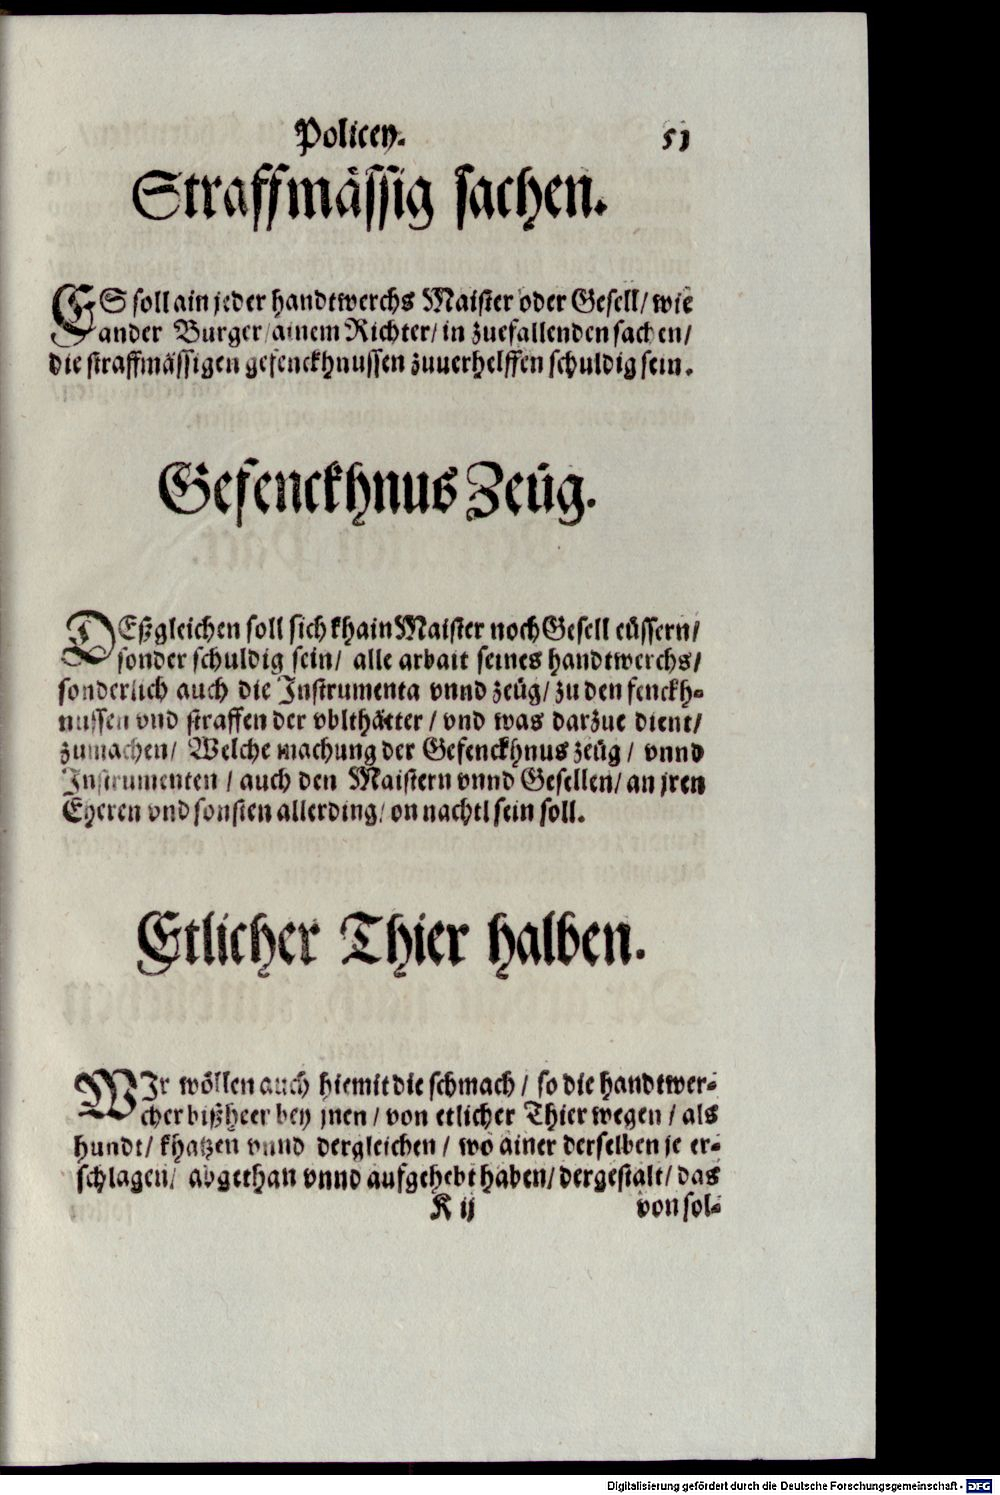 Policey.
51
Straffmässig sachen.
ES soll ain jeder handtwerchs Maister oder Gesell/ wie
ander Burger/ ainem Richter/ in zuefallenden sachen/
die straffmässigen gefenckhnussen zuuerhelffen schuldig sein.
Gefenckhnus Zeüg.
DEßgleichen soll sich khain Maister noch Gesell eüssern/
sonder schuldig sein/ alle arbait seines handtwerchs/
sonderlich auch die Instrumenta vnnd zeüg/ zu den fenckh-
nussen vnd straffen der vblthätter/ vnd was darzue dient/
zumachen/ Welche machung der Gefenckhnus zeüg/ vnnd
Instrumenten/ auch den Maistern vnnd Gesellen/ an jren
Eheren vnd sonsten allerding/ on nachtl sein soll.
Etlicher Thier halben.
WIr wöllen auch hiemit die schmach/ so die handtwer-
cher bißheer bey jnen/ von etlicher Thier wegen/ als
hundt/ khatzen vnnd dergleichen/ wo ainer derselben je er-
schlagen/ abgethan vnnd aufgehebt haben/ dergestalt/ das
K ij
von sol-
Digitalisierung gefördert durch die Deutsche Forschungsgemeinschaft - DFG